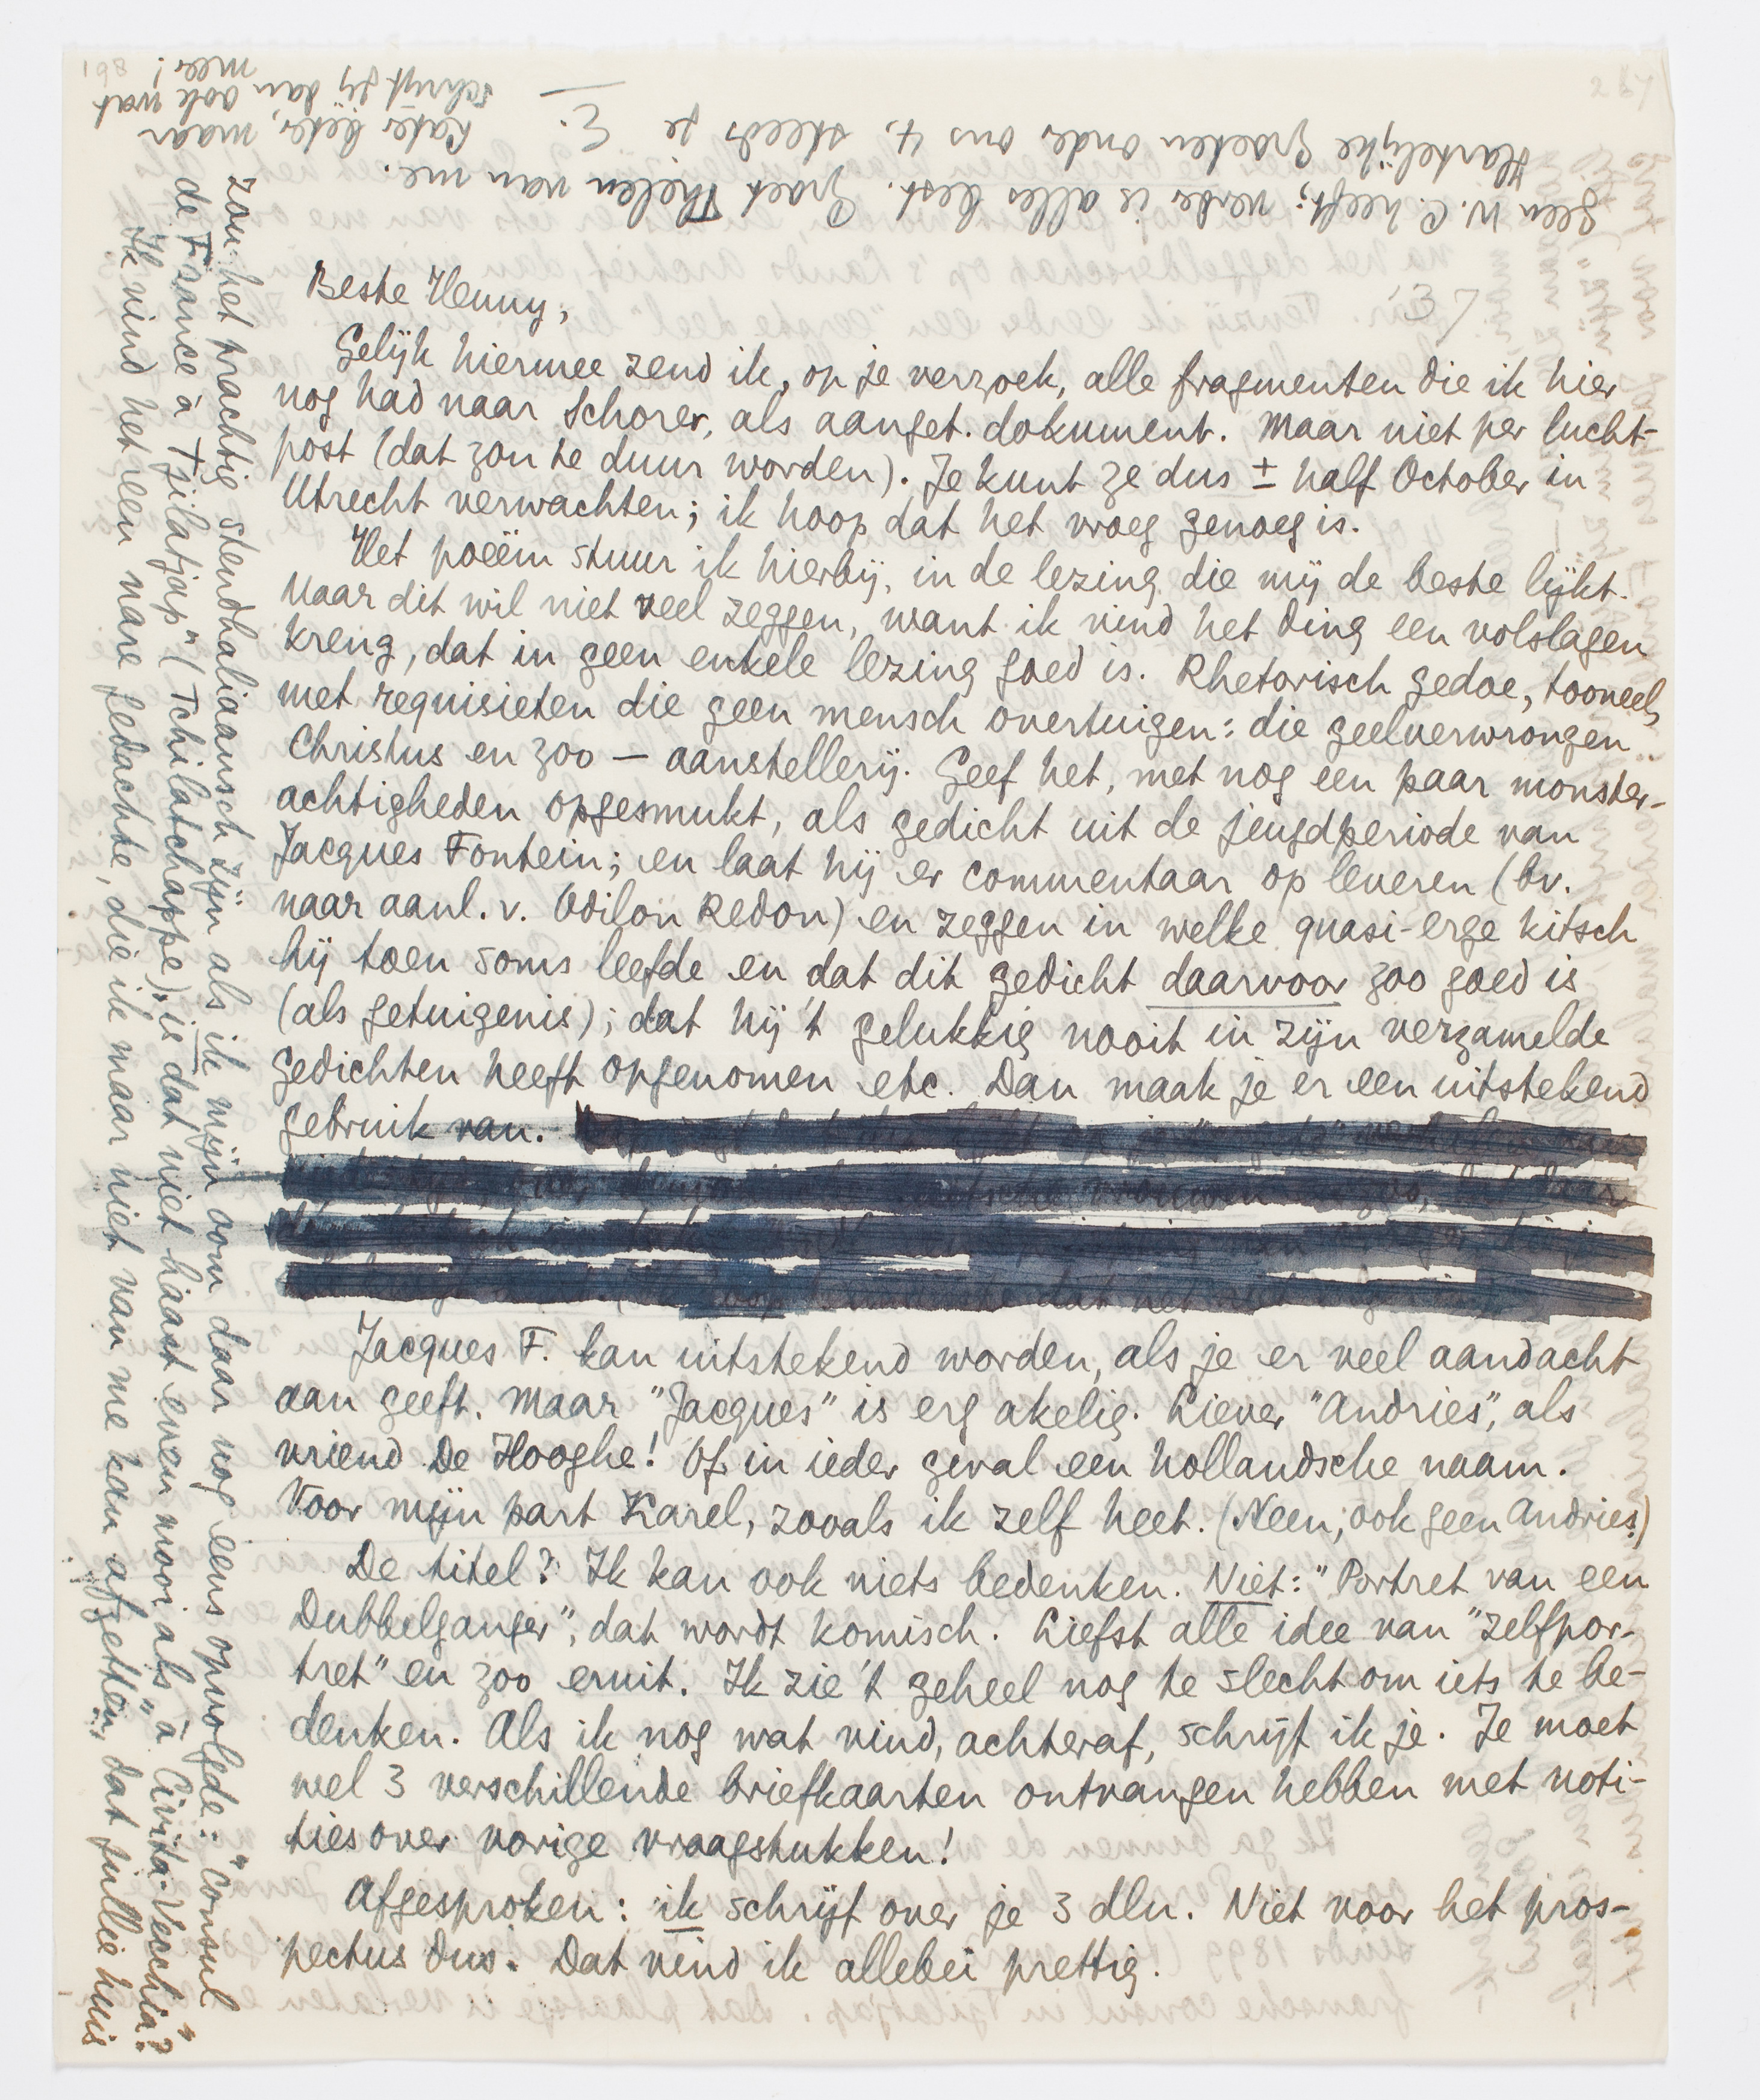 Beste Henny,
'37
Gelijk hiermee zend ik, op je verzoek, alle fragmenten die ik hier
nog had naar Schorer, als aanget. dokument. Maar niet per lucht-
post (dat zou te duur worden). Je kunt ze dus ± half October in
Utrecht verwachten; ik hoop dat het vroeg genoeg is.
Het poëem stuur ik hierbij, in de lezing die mij de beste lijkt.
Maar dit wil niet veel zeggen, want ik vind het ding een volslagen
kreng, dat in geen enkele lezing goed is. Rhetorisch gedoe, tooneel,
met requisieten die geen mensch overtuigen: die geelverwrongen
Christus en zoo — aanstellerij. Geef het, met nog een paar monster-
achtigheden opgesmukt, als gedicht uit de jeugdperiode van
Jacques Fontein; en laat hij er commentaar op leveren (bv.
naar aanl. v. Odilon Redon) en zeggen in welke quasi-erge kitsch
hij toen soms leefde en dat dit gedicht daarvoor zoo goed is
(als getuigenis); dat hij 't gelukkig nooit in zijn verzamelde
gedichten heeft opgenomen etc. Dan maak je er een uitstekend
gebruik van.
Jacques F. kan uitstekend worden, als je er veel aandacht
aan geeft. Maar "Jacques" is erg akelig. Liever "Andries", als
vriend De Hooghe! Of in ieder geval een hollandsche naam.
Voor mijn part Karel, zooals ik zelf heet. (Neen, ook geen Andries!)
De titel? Ik kan ook niets bedenken. Niet: "Portret van een
Dubbelganger", dat wordt komisch. Liefst alle idee van "zelfpor-
tret" en zoo eruit. Ik zie 't geheel nog te slecht om iets te be-
denken. Als ik nog wat vind, achteraf, schrijf ik je. Je moet
wel 3 verschillende briefkaarten ontvangen hebben met noti-
ties over vorige vraagstukken!
Afgesproken: ik schrijf over je 3 dln. Niet voor het pros-
pectus dus. Dat vind ik allebei prettig.
zou het prachtig stendhaliaansch zijn als ik mijn oom daar nog eens opvolgde: "Consul
de France à Tjilatjap" (Tchilatchappe); is dat niet haast even mooi als "à Civita-Vecchia"?
Ik vind het een nare gedachte, die ik maar niet van me kan afzetten, dat jullie huis
geen W.C. heeft; verder is alles best. Groet Thelen van me.
Hartelijke groeten onder ons 4, steeds je E.
Later beter, maar
schrijf jij dan ook wat
meer!
198